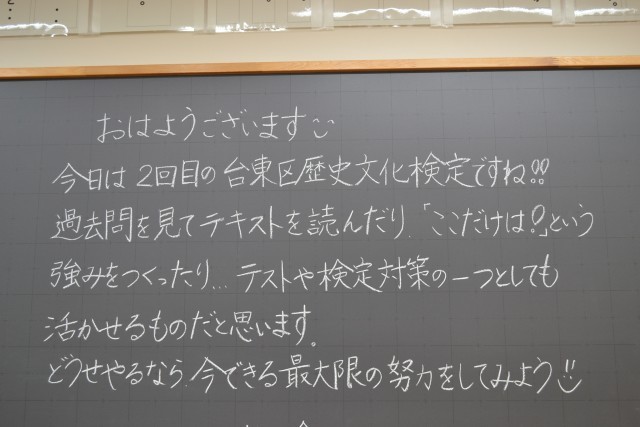 おはようございます
今日は2回目の台東区歴史文化検定ですね!!
過去問を見てテキストを読んだり、「ここだけは?」という
強みをつくったり...テストや検定対策の一つとしても
活かせるものだと思います。
どうせやるなら、今できる最大限の努力をしてみよう